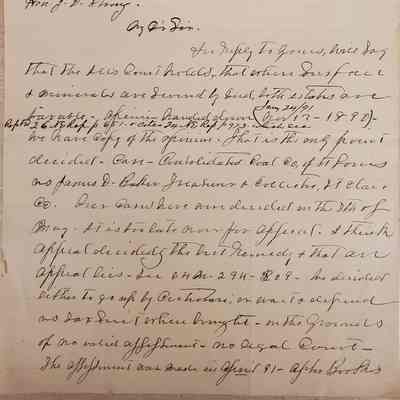 Hon. J. D. Strong.
My Dr Sir.
In reply to yours, will say
that the Ills Court holds, that where Surface
& minerals are severed by deed, both estates are
Jany 24/91
taxable - opinion handed down
Rep. 26 N.E. Rep. p 651 - Cites 24 N.E. Rep. which see
We have Copy of the opinion. That is the only point
decided - Case - Consolidated Coal Co. of St Louis
vs James D. Baker Treasurer & Collector, St Clair
Co. Our Cases here were decided on the 8th of
May. It is too late now for appeal. I think
Appeal decidedly the best Remedy & that an
Appeal lies - See 294 - We decided
either to go up by Certiorari, or wait & defend
vs Tax Suit when brought - on the Grounds
of no valid assessment - no legal Court -
The assessment was made in April 91 - after Books